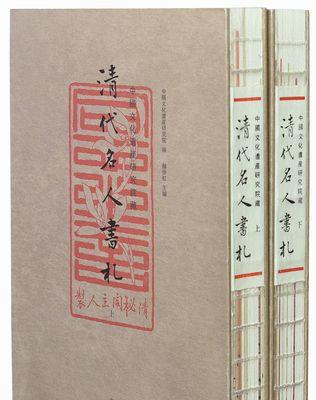 中國文化遺產研究院 編 主編
中國文化遺產研究院藏
清代名人書札
上
清秘閣主人製
中國文化遺產研究院藏
清代名人書札
上
中國文化遺產研究院藏
清代名人書札
下